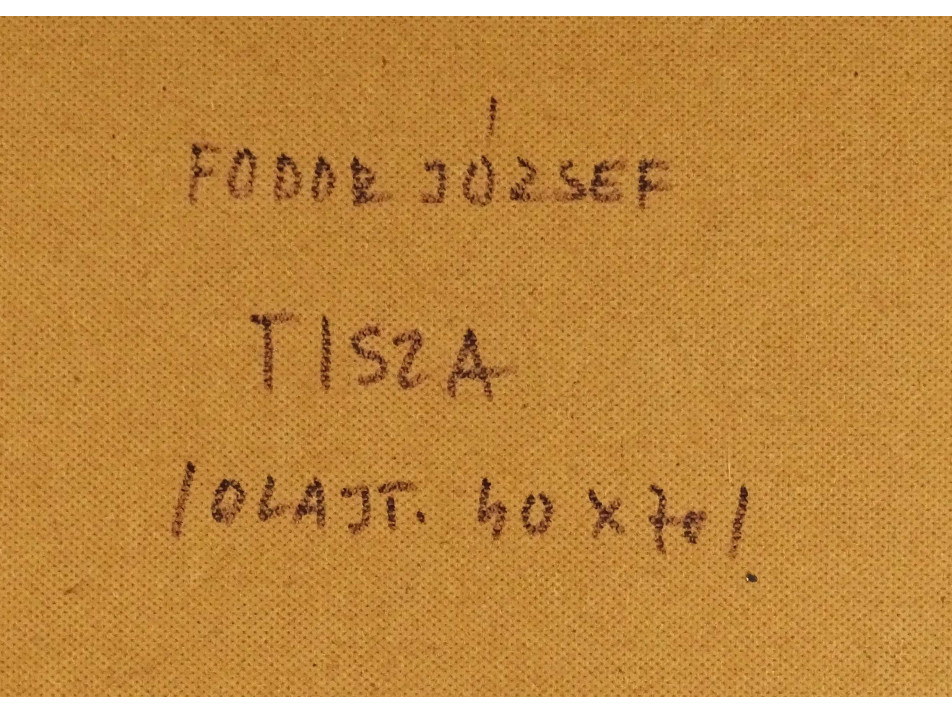 FODOR JÓZSEF
TISZA
/OLAJT. 40 X 70/.